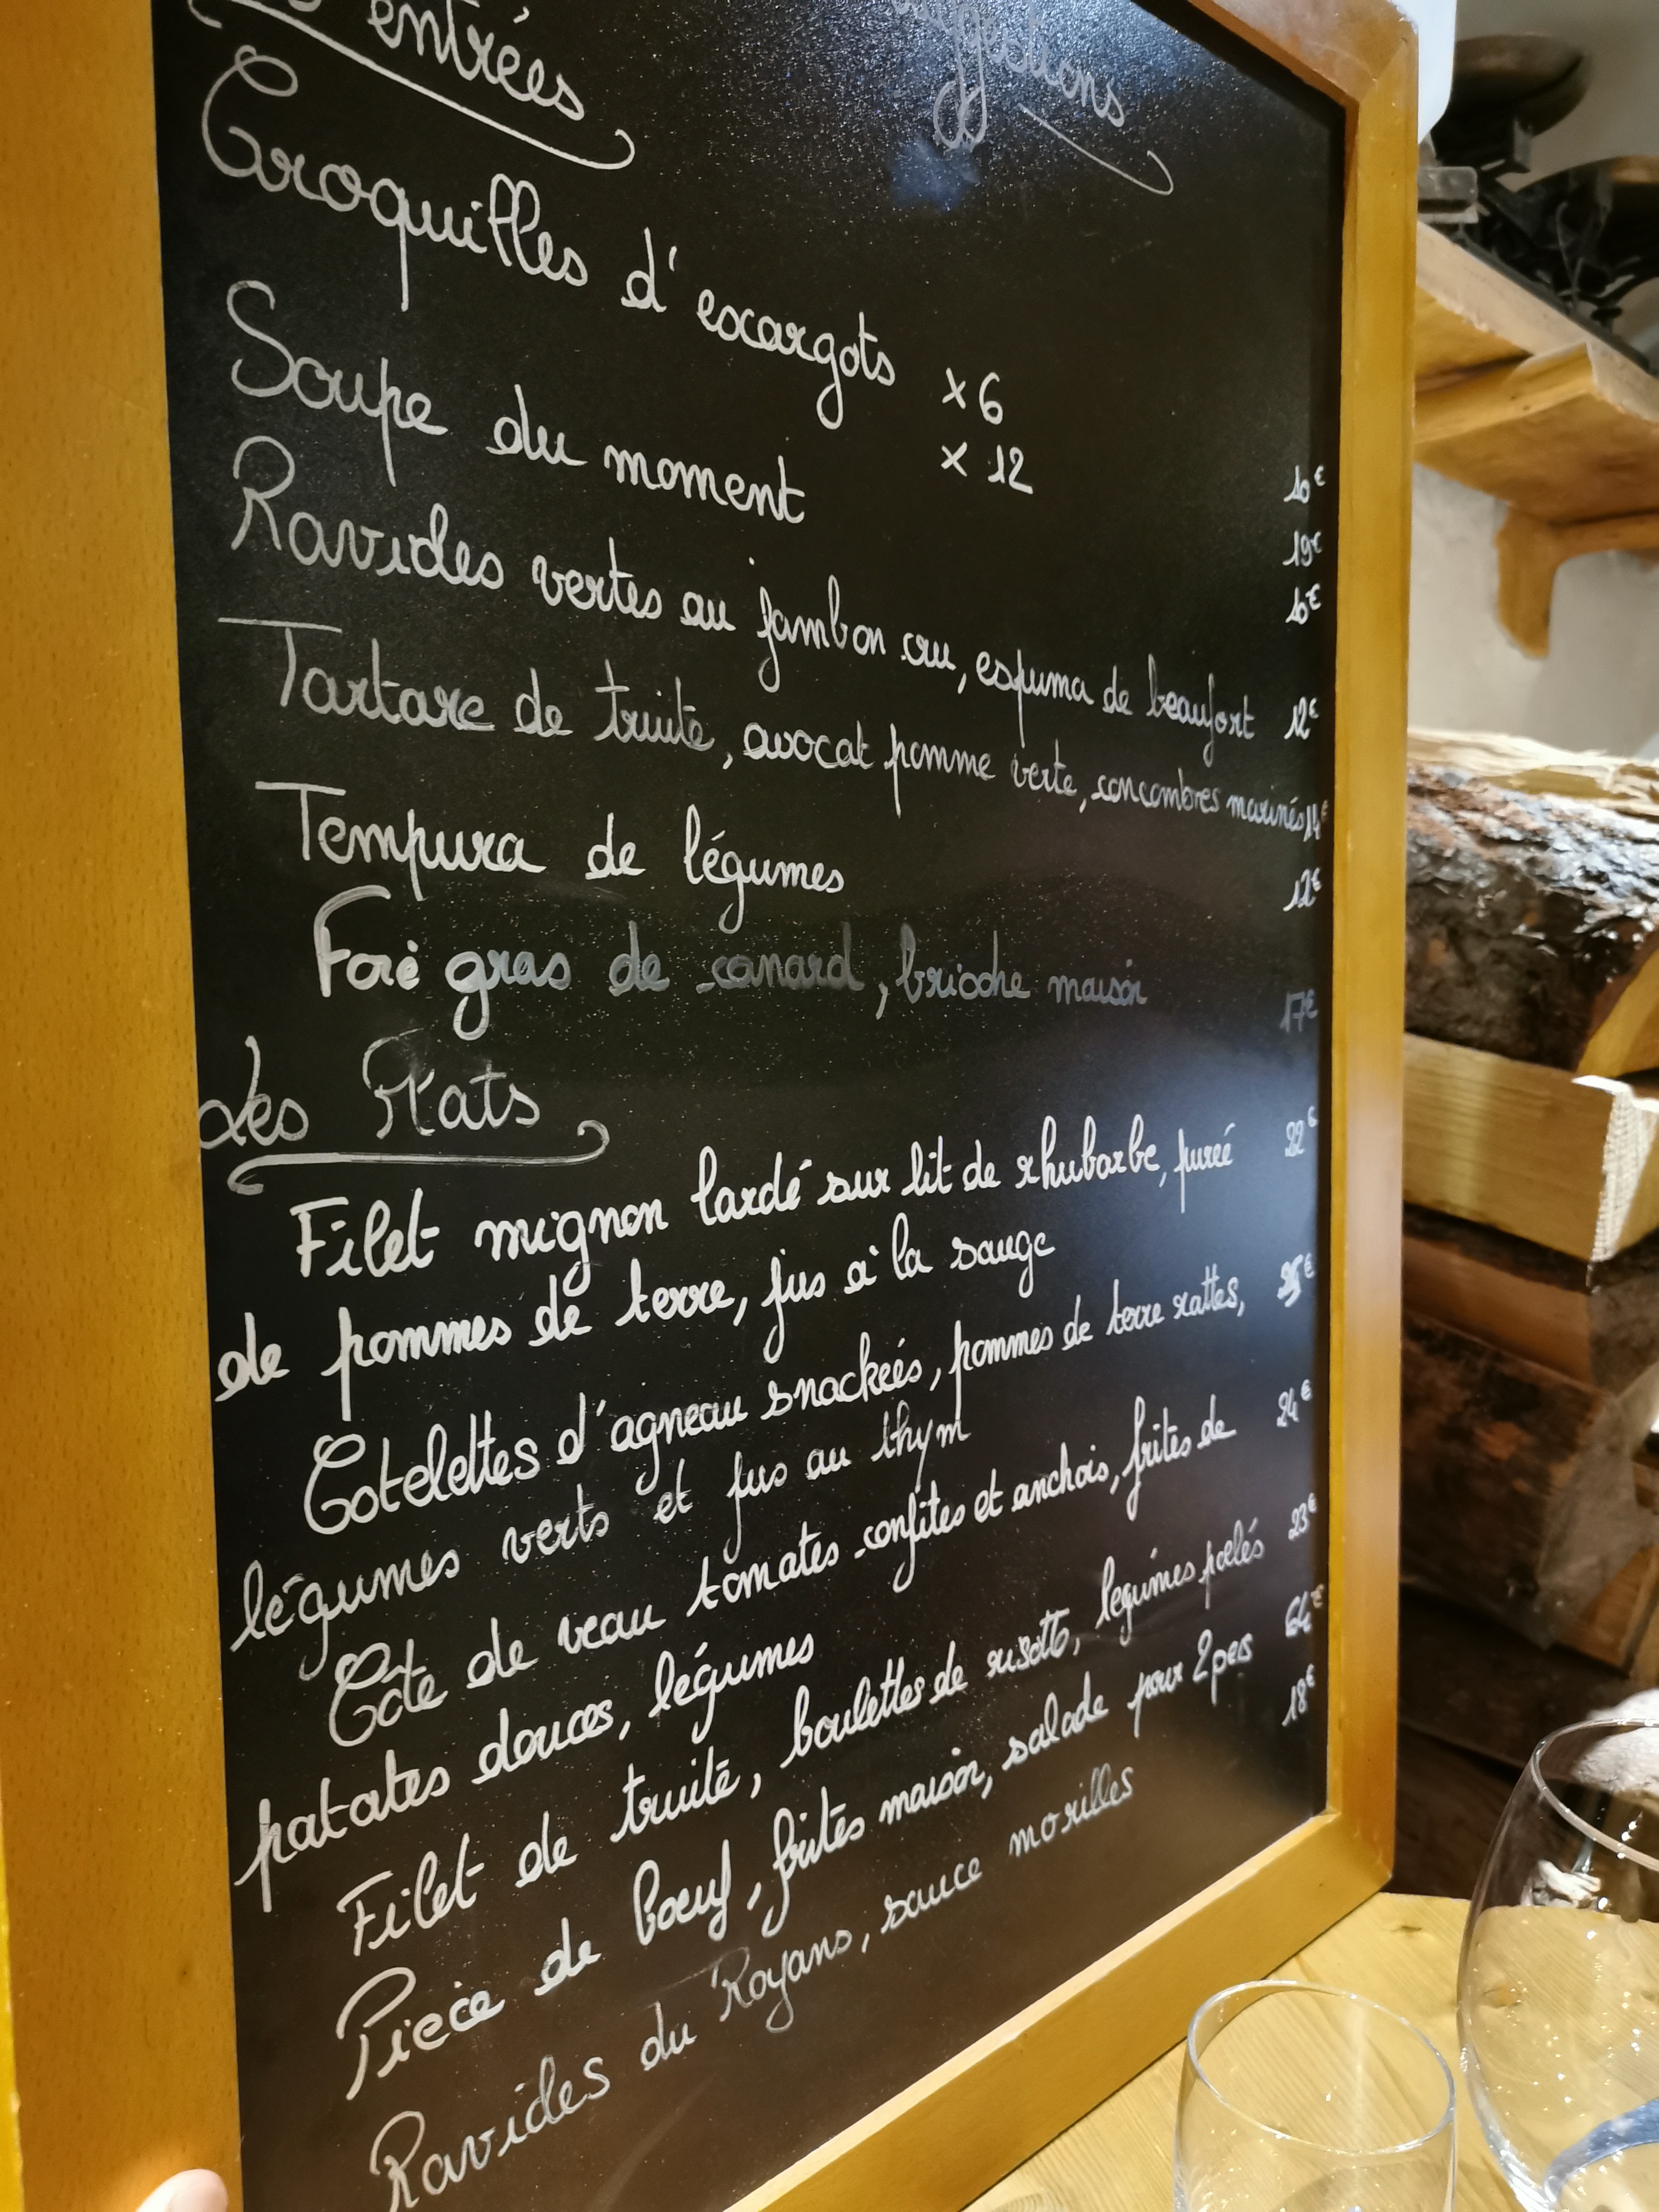 entrées
Suggestions
Croquilles d'escargots x6 10€
x 12 19€
Soupe du moment 10€
Ravioles vertes au jambon cru, espuma de beaufort 12€
Tartare de truite, avocat pomme verte, concombres marinés 14€
Tempura de légumes 12€
Foie gras de canard, brioche maison 17€
Les Plats
Filet mignon lardé sur lit de rhubarbe, purée 22€
de pommes de terre, jus à la sauge
Cotelettes d'agneau snackées, pommes de terre rattes, 25€
légumes verts et jus au thym
Côte de veau tomates confites et anchois, frites de 24€
patates douces, légumes
Filet de truite, boulettes de risotto, légumes poelés 23€
Piece de boeuf, frites maison, salade pour 2 pers 64€
Ravioles du Royans, sauce morilles 18€